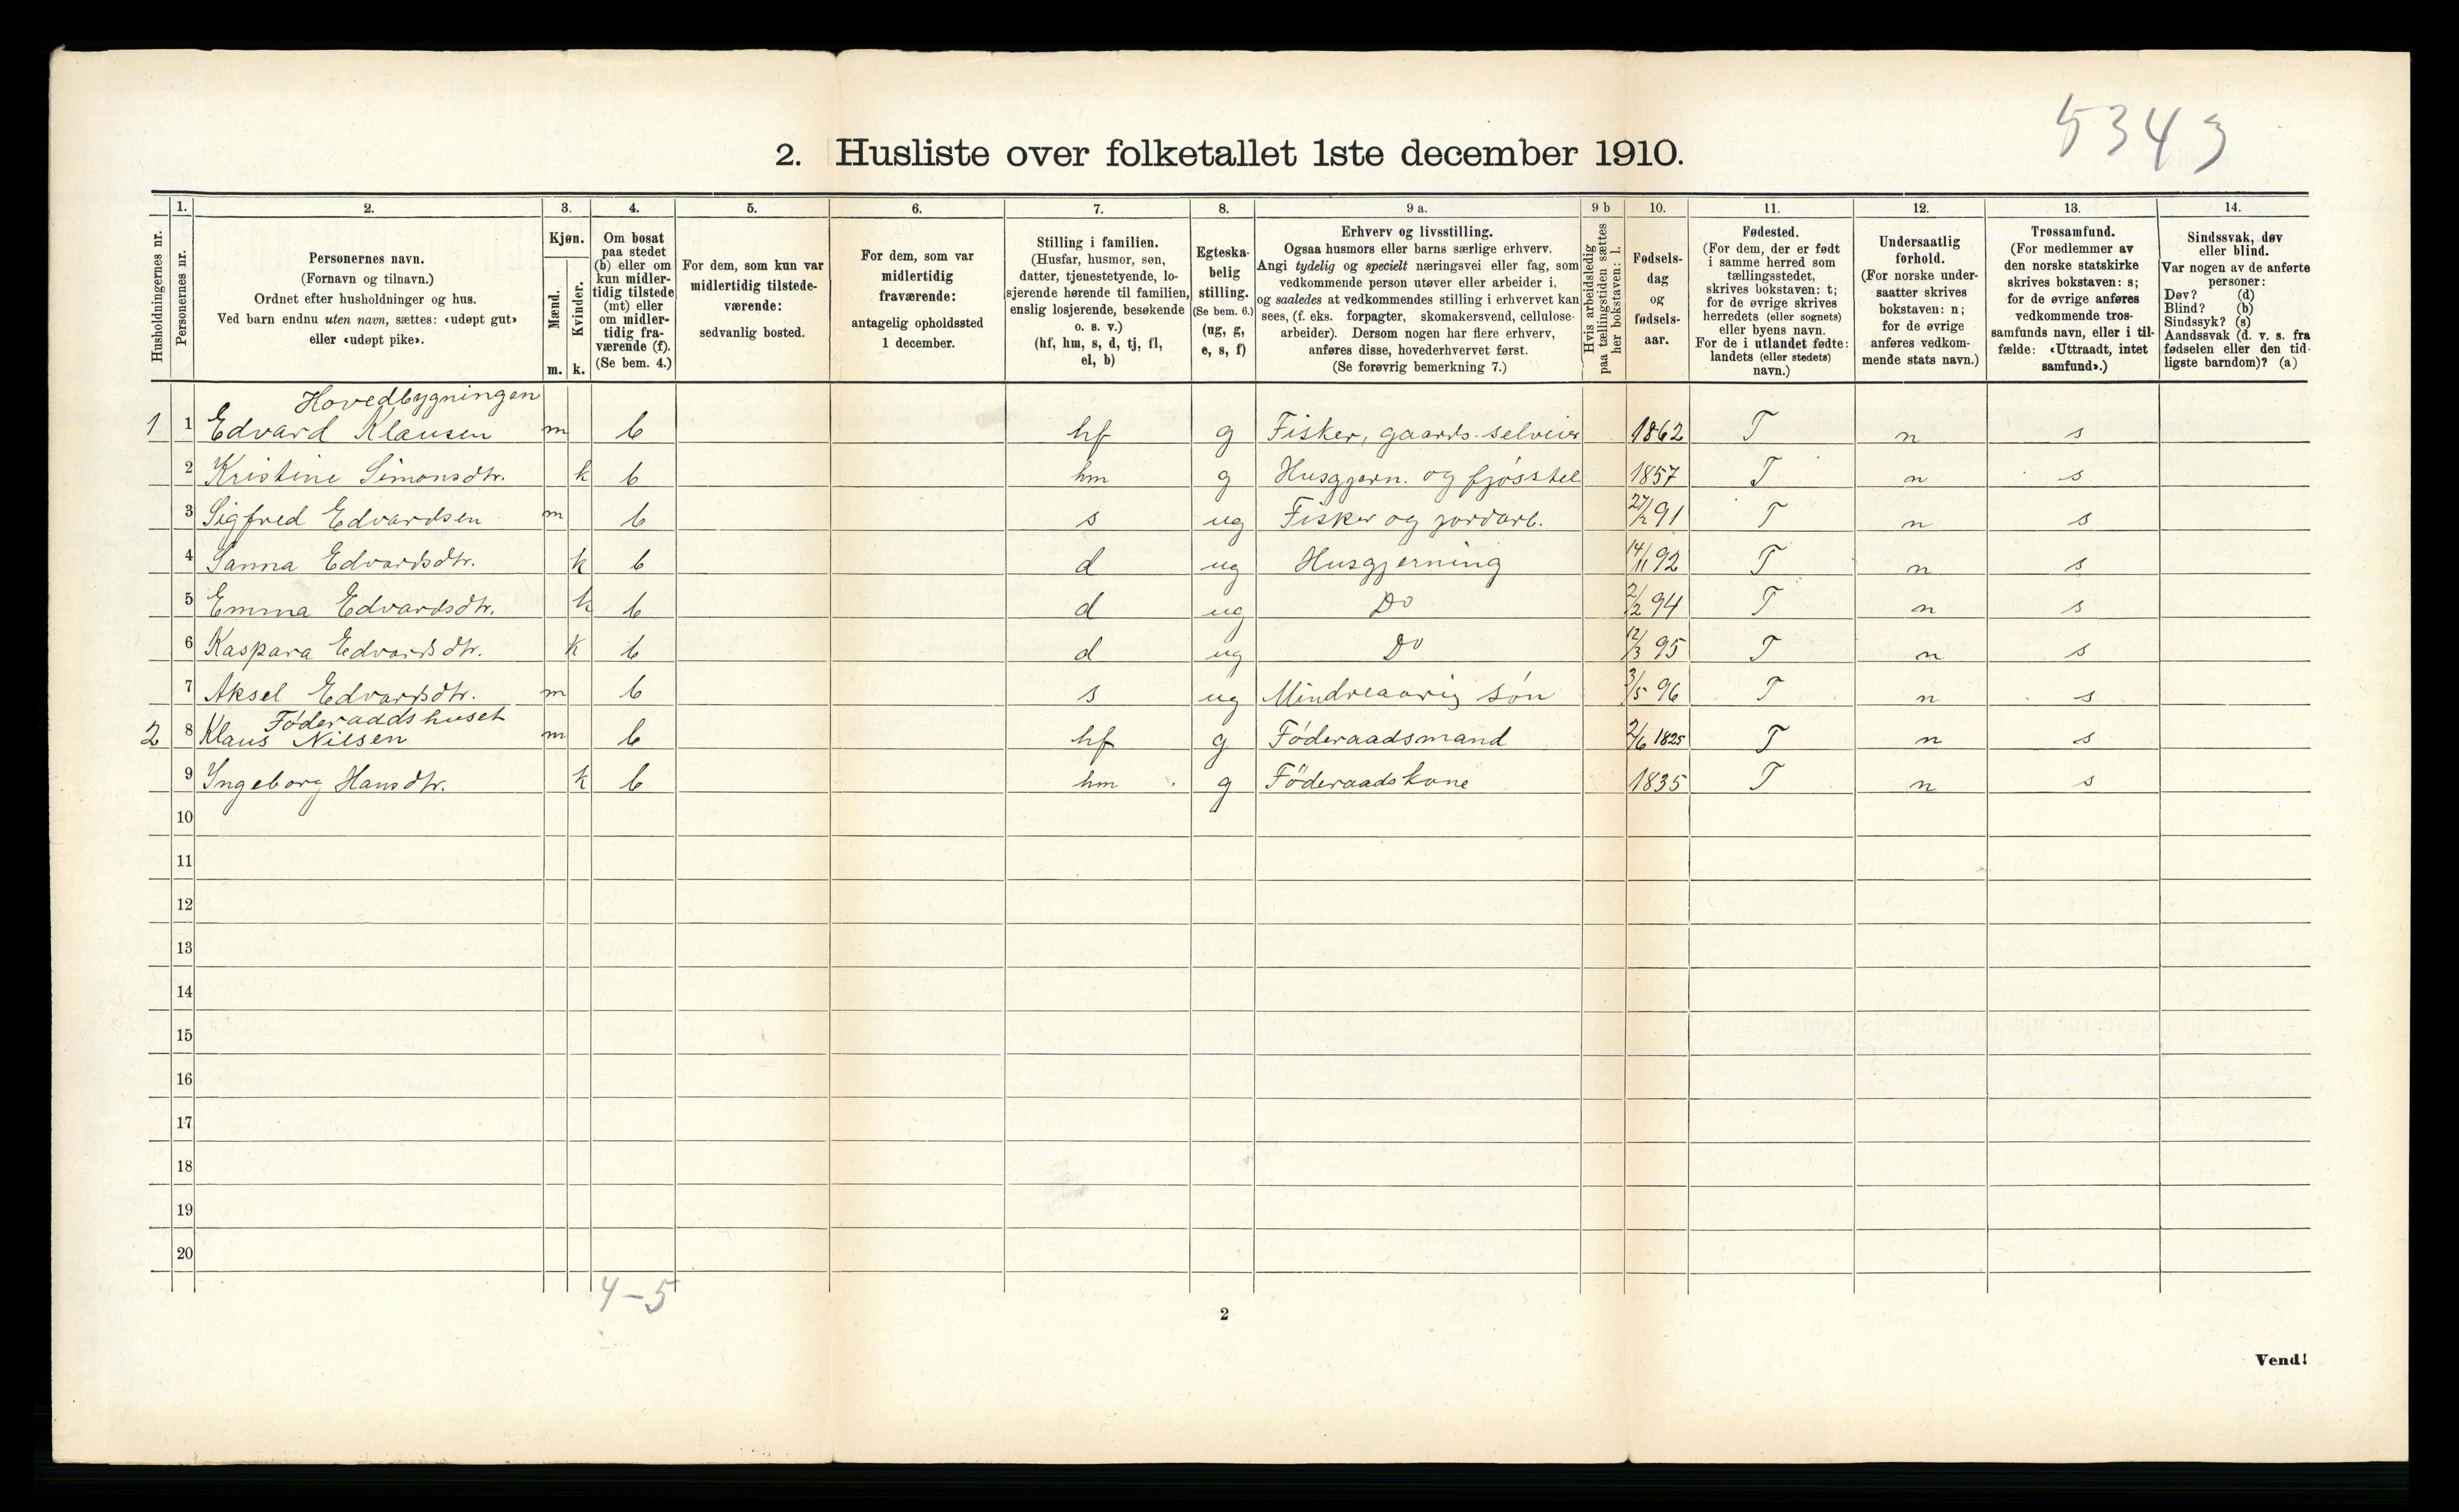 5343
2. Husliste over folketallet 1ste december 1910.
Husholdningernes nr.
1.
Personernes nr.
2.
Personernes navn.
(Fornavn og tilnavn.)
Ordnet efter husholdninger og hus.
Ved barn endnu uten navn, sættes: «udøpt gut»
eller «udøpt pike».
3.
Kjøn.
Mænd.
Kvinder.
m. k.
4.
Om bosat
paa stedet
(b) eller om
kun midler-
tidig tilstede
(mt) eller
om midler-
tidig fra-
værende (f).
(Se bem. 4.)
5.
For dem, som kun var
midlertidig tilstede-
værende:
sedvanlig bosted.
6.
For dem, som var
midlertidig
fraværende:
antagelig opholdssted
1 december.
7.
Stilling i familien.
(Husfar, husmor, søn,
datter, tjenestetyende, lo-
sjerende hørende til familien,
enslig losjerende, besøkende
o. s. v.)
(hf, hm, s, d, tj, fl,
el, b)
8.
Egteska-
belig
stilling.
(Se bem. 6.)
(ug, g,
e, s, f)
9 a.
Erhverv og livsstilling.
Ogsaa husmors eller barns særlige erhverv.
Angi tydelig og specielt næringsvei eller fag, som
vedkommende person utøver eller arbeider i,
og saaledes at vedkommendes stilling i erhvervet kan
sees, (f. eks. forpagter, skomakersvend, cellulose-
arbeider). Dersom nogen har flere erhverv,
anføres disse, hovederhvervet først.
(Se forøvrig bemerkning 7.)
9 b
Hvis arbeidsledig
paa tællingstiden sættes
her bokstaven: l.
10.
Fødsels-
dag
og
fødsels-
aar.
11.
Fødested.
(For dem, der er født
i samme herred som
tællingsstedet,
skrives bokstaven: t;
for de øvrige skrives
herredets (eller sognets)
eller byens navn.
For de i utlandet fødte:
landets (eller stedets)
navn.)
12.
Undersaatlig
forhold.
(For norske under-
saatter skrives
bokstaven: n;
for de øvrige
anføres vedkom-
mende stats navn.)
13.
Trossamfund.
(For medlemmer av
den norske statskirke
skrives bokstaven: s;
for de øvrige anføres
vedkommende tros-
samfunds navn, eller i til-
fælde: «Uttraadt, intet
samfund».)
14.
Sindssvak, døv
eller blind.
Var nogen av de anførte
personer:
Døv? (d)
Blind? (b)
Sindssyk? (s)
Aandssvak (d. v. s. fra
fødselen eller den tid-
ligste barndom)? (a)
Hovedbygningen
1 1 Edvard Klausen m b hf g Fisker, gaards. selveier 1862 T n s
2 Kristine Simonsdtr. k b hm g Husgjern. og fjøsstel 1857 T n s
3 Sigfred Edvardsen m b s ug Fisker og jordarb. 27/2 91 T n s
4 Sanna Edvardsdtr. k b d ug Husgjerning 14/11 92 T n s
5 Emma Edvardsdtr. k b d ug Do 2/2 94 T n s
6 Kaspara Edvardsdtr. k b d ug Do 12/3 95 T n s
7 Aksel Edvardsdtr. m b s ug Mindreaarig søn 3/5 96 T n s
Føderaadshuset
2 8 Klaus Nilsen m b hf g Føderaadsmand 2/6 1825 T n s
9 Ingeborg Hansdtr. k b hm g Föderaadskone 1835 T n s
10
11
12
13
14
15
16
17
18
19
20
4-5
2
Vend!